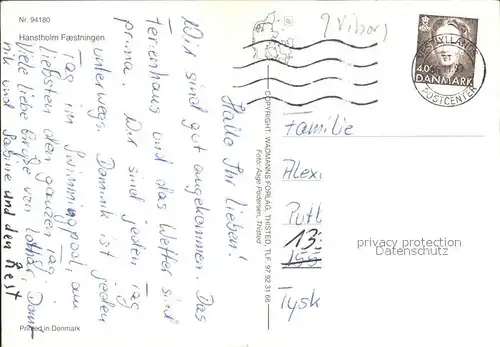 Nr. 94180
Hanstholm Fæstningen
Hallo Ihr Lieben!
Wir sind gut angekommen. Das
Ferienhaus und das Wetter sind
prima. Wir sind jeden Tag
unterwegs. Dominik ist jeden
Tag im Swimmingpool, am
liebsten den ganzen Tag.
Viele liebe Grüße von Lothar, Domi-
nik und Sabine und den Rest
Printed in Denmark
COPYRIGHT: WADMANNS FORLAG, THISTED, TLF. 97 92 31 66
Foto: Aage Pedersen, Thisted
(Viborg)
400
DANMARK
POSTCENTER
Familie
Alexi
Putt
13
Tysk
privacy protection
Datenschutz